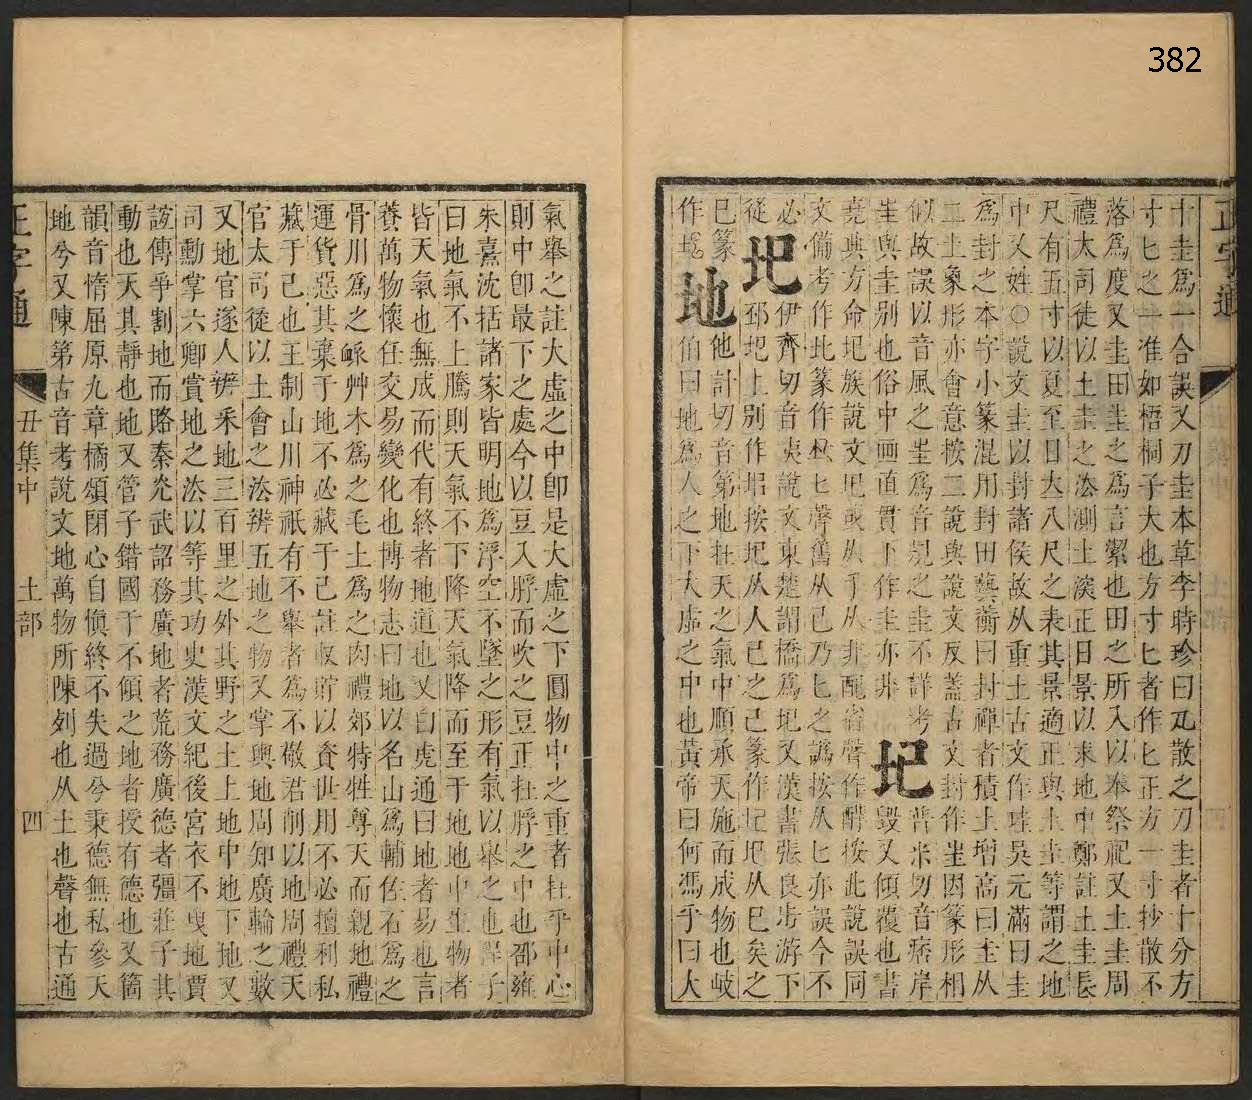 382
正字通
十圭爲一合誤又刀圭本草李時珍曰凡散之刀圭者十分方
寸匕之一准如梧桐子大也方寸匕者作匕正方一寸抄散不
落爲度又圭田圭之爲言潔也田之所入以奉祭祀又土圭周
禮太司徒以土圭之法測土深正日景以求地中鄭註土圭長
尺有五寸以夏至日立八尺之表其景適正與土圭等謂之地
中又姓○說文圭以封諸侯故从重土古文作珪吳元滿曰圭
爲封之本字小篆混用封田藝蘅曰封禪者積土增高曰圭从
二土象形亦會意按二說與說文反蓋古文封作𡉚因篆形相
似故誤以音風之𡉚爲音規之圭不詳考
𡉚與圭別也俗中画直貫下作圭亦非
圮
普米切音痞岸
毀又傾覆也書
堯典方命圮族說文圮或从手从非配省聲作𨻃按此說誤同
文備考作此篆作𣏌匕聲舊从己乃匕之譌按从匕亦誤今不
必
圯
伊齊切音夷說文東楚謂橋爲圯又漢書張良步游下
從
邳圯上別作𡉏按圯从人已之已篆作圯圮从巳矣之
巳篆
作𡉏
地
他計切音第地在天之氣中順承天施而成物也岐
伯曰地爲人之下大虛之中也黃帝曰何馮乎曰大
氣舉之註大虛之中卽是大虛之下圓物中之重者在乎中心
則中卽最下之處今以豆入脬而吹之豆正在脬之中也邵雍
朱熹沈括諸家皆明地爲浮空不墜之形有氣以舉之也淮子
曰地氣不上騰則天氣不下降天氣降而至于地地中生物者
皆天氣也無成而代有終者地道也又白虎通曰地者易也言
養萬物懷任交易變化也博物志曰地以名山爲輔佐石爲之
骨川爲之脈艸木爲之毛土爲之肉禮郊特牲尊天而親地禮
運貨惡其棄于地不必藏于己註収貯以資世用不必擅利私
藏于己也王制山川神祇有不舉者爲不敬君削以地周禮天
官太司徒以土會之法辨五地之物又掌輿地周知廣輪之數
又地官遂人辨釆地三百里之外其野之土上地中地下地又
司勳掌六卿賞地之法以等其功史漢文紀後宮衣不曳地賈
誼傳爭割地而賂秦光武詔務廣地者荒務廣德者彊莊子其
動也天其靜也地又管子錯國于不傾之地者授有德也又箇
韻音惰屈原九章橘頌閉心自愼終不失過兮秉德無私參天
地兮又陳第古音考說文地萬物所陳列也从土也聲也古通
正字通
丑集中
土部
四